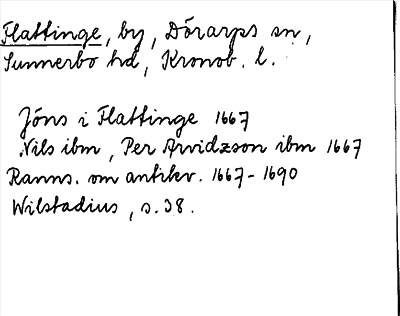 Flattinge, by, Dörarps sn,
Sunnerbo hd, Kronob. l.
Jöns i Flattinge 1667
Nils ibm, Per Arvidzson ibm 1667
Ranns. om antikv. 1667-1690
Wilstadius, s. 38.